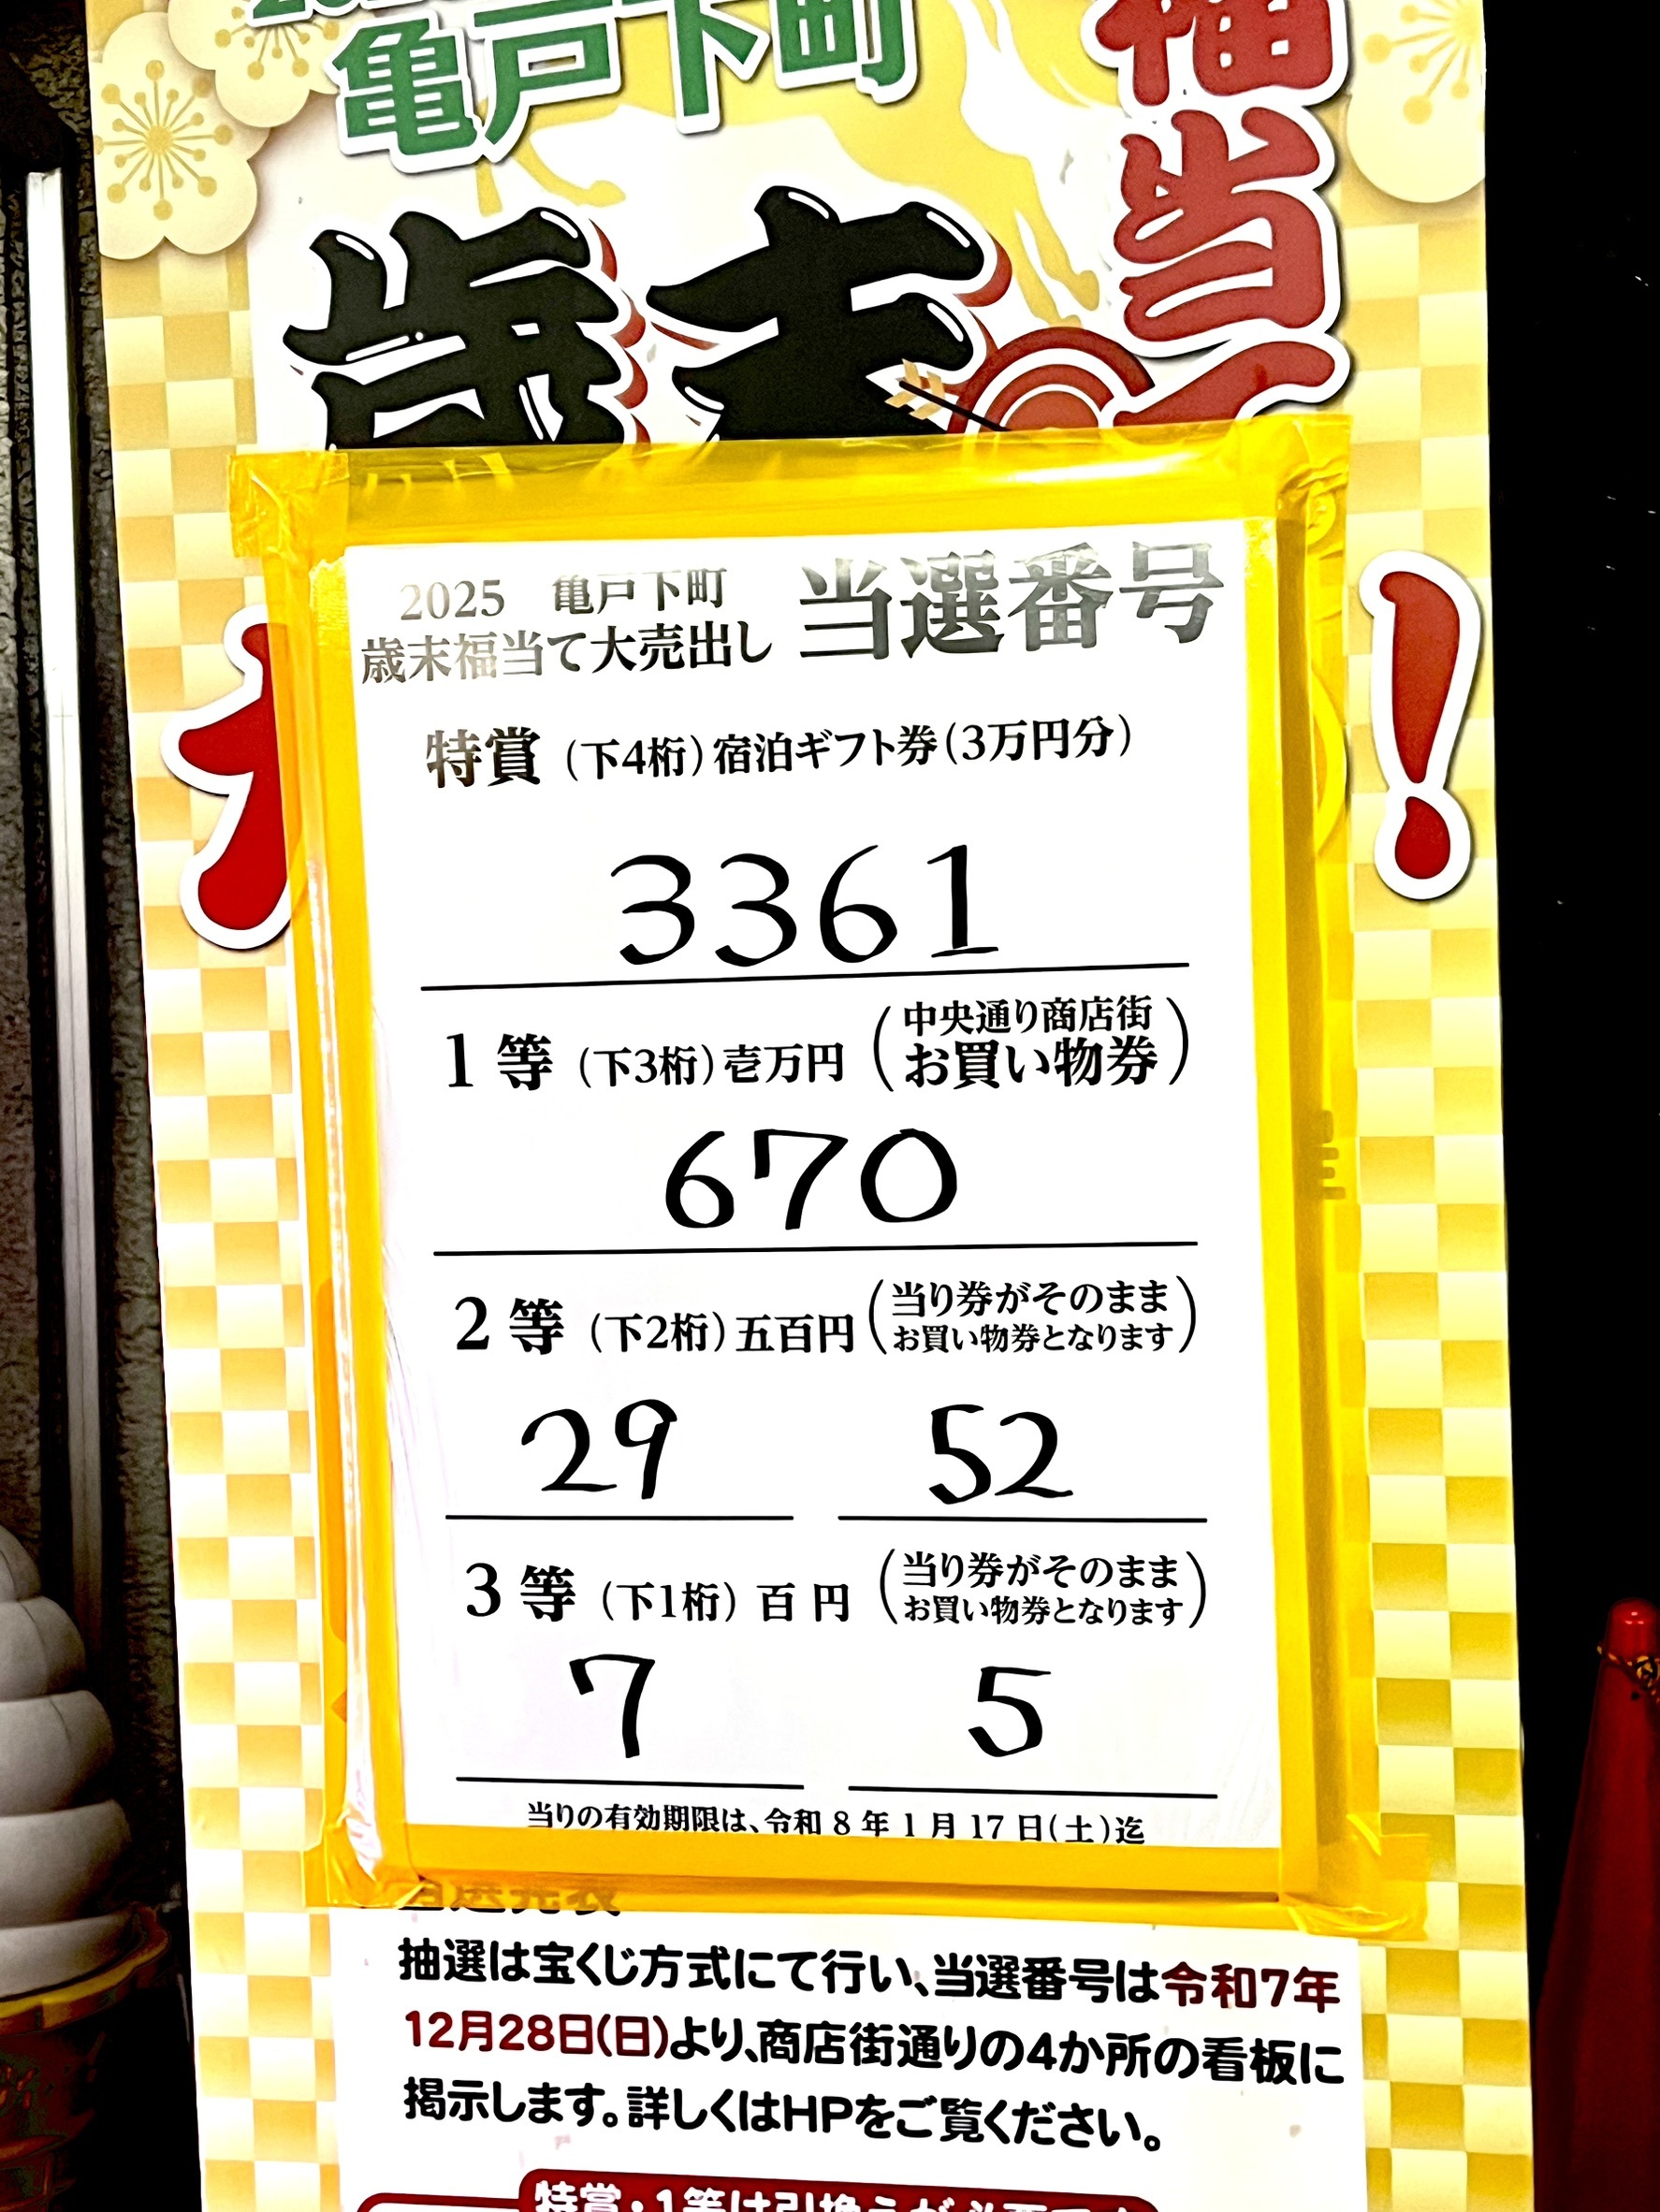 亀戸下町
歳末
福当て
!
2025 亀戸下町
歳末福当て大売出し
当選番号
特賞 (下4桁) 宿泊ギフト券(3万円分)
3361
1等 (下3桁) 壱万円 (中央通り商店街
お買い物券)
670
2等 (下2桁) 五百円 (当り券がそのまま
お買い物券となります)
29 52
3等 (下1桁) 百円 (当り券がそのまま
お買い物券となります)
7 5
当りの有効期限は、令和8年1月17日(土)迄
抽選は宝くじ方式にて行い、当選番号は令和7年
12月28日(日)より、商店街通りの4か所の看板に
掲示します。詳しくはHPをご覧ください。
特賞・1等は引換えが必要